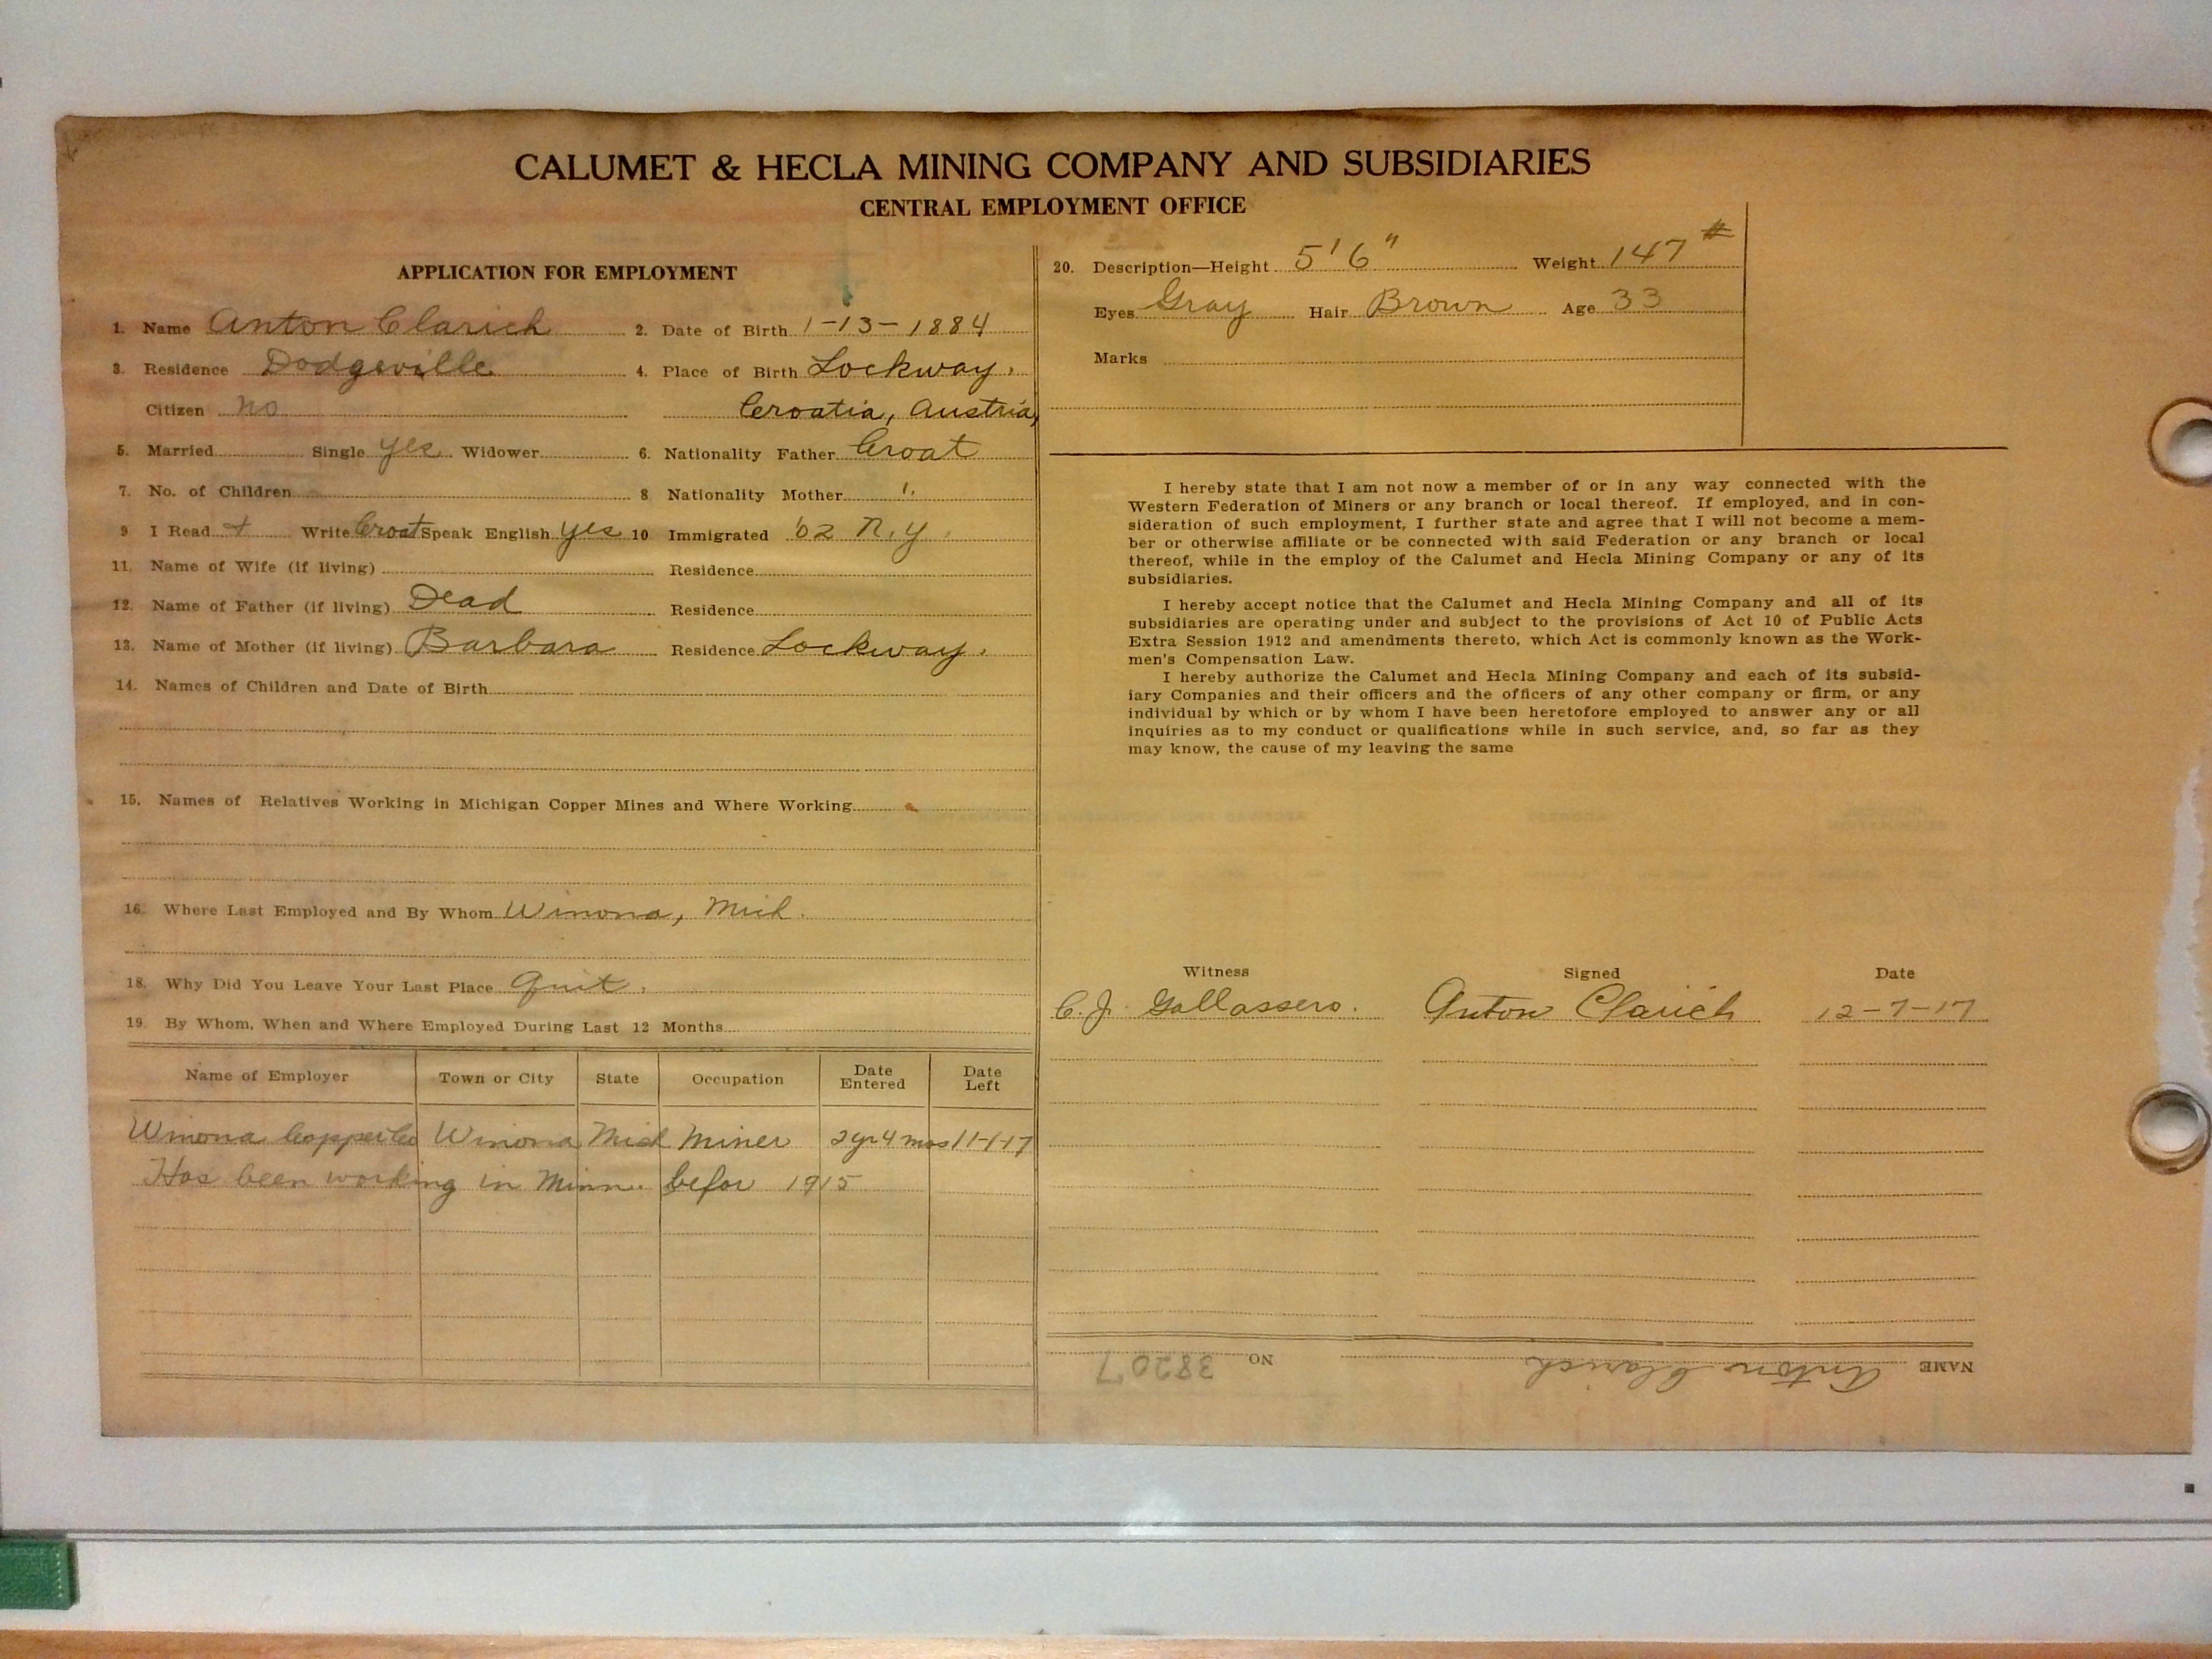 CALUMET & HECLA MINING COMPANY AND SUBSIDIARIES
CENTRAL EMPLOYMENT OFFICE
APPLICATION FOR EMPLOYMENT
1. Name Anton Clarich 2. Date of Birth 1-13-1884
3. Residence Dodgeville 4. Place of Birth Lockway,
Citizen no Croatia, Austria,
5. Married Single yes Widower 6. Nationality Father Croat
7. No. of Children 8 Nationality Mother "
9 I Read & Write Croat Speak English yes 10 Immigrated '02 N.Y.
11. Name of Wife (if living) Residence
12. Name of Father (if living) Dead Residence
13. Name of Mother (if living) Barbara Residence Lockway.
14. Names of Children and Date of Birth
15. Names of Relatives Working in Michigan Copper Mines and Where Working
16. Where Last Employed and By Whom Winona, Mich.
18. Why Did You Leave Your Last Place Quit.
19. By Whom, When and Where Employed During Last 12 Months
Name of Employer Town or City State Occupation Date Entered Date Left
Winona Copper Co Winona Mich Miner 2 yr 4 mos 11-1-17
Has been working in Minn. befor 1915
20. Description—Height 5'6" Weight 147 #
Eyes Gray Hair Brown Age 33
Marks
I hereby state that I am not now a member of or in any way connected with the
Western Federation of Miners or any branch or local thereof. If employed, and in con-
sideration of such employment, I further state and agree that I will not become a mem-
ber or otherwise affiliate or be connected with said Federation or any branch or local
thereof, while in the employ of the Calumet and Hecla Mining Company or any of its
subsidiaries.
I hereby accept notice that the Calumet and Hecla Mining Company and all of its
subsidiaries are operating under and subject to the provisions of Act 10 of Public Acts
Extra Session 1912 and amendments thereto, which Act is commonly known as the Work-
men's Compensation Law.
I hereby authorize the Calumet and Hecla Mining Company and each of its subsid-
iary Companies and their officers and the officers of any other company or firm, or any
individual by which or by whom I have been heretofore employed to answer any or all
inquiries as to my conduct or qualifications while in such service, and, so far as they
may know, the cause of my leaving the same
Witness Signed Date
C. J. Gallassero. Anton Clarich 12-7-17
NAME Anton Clarich NO 38207